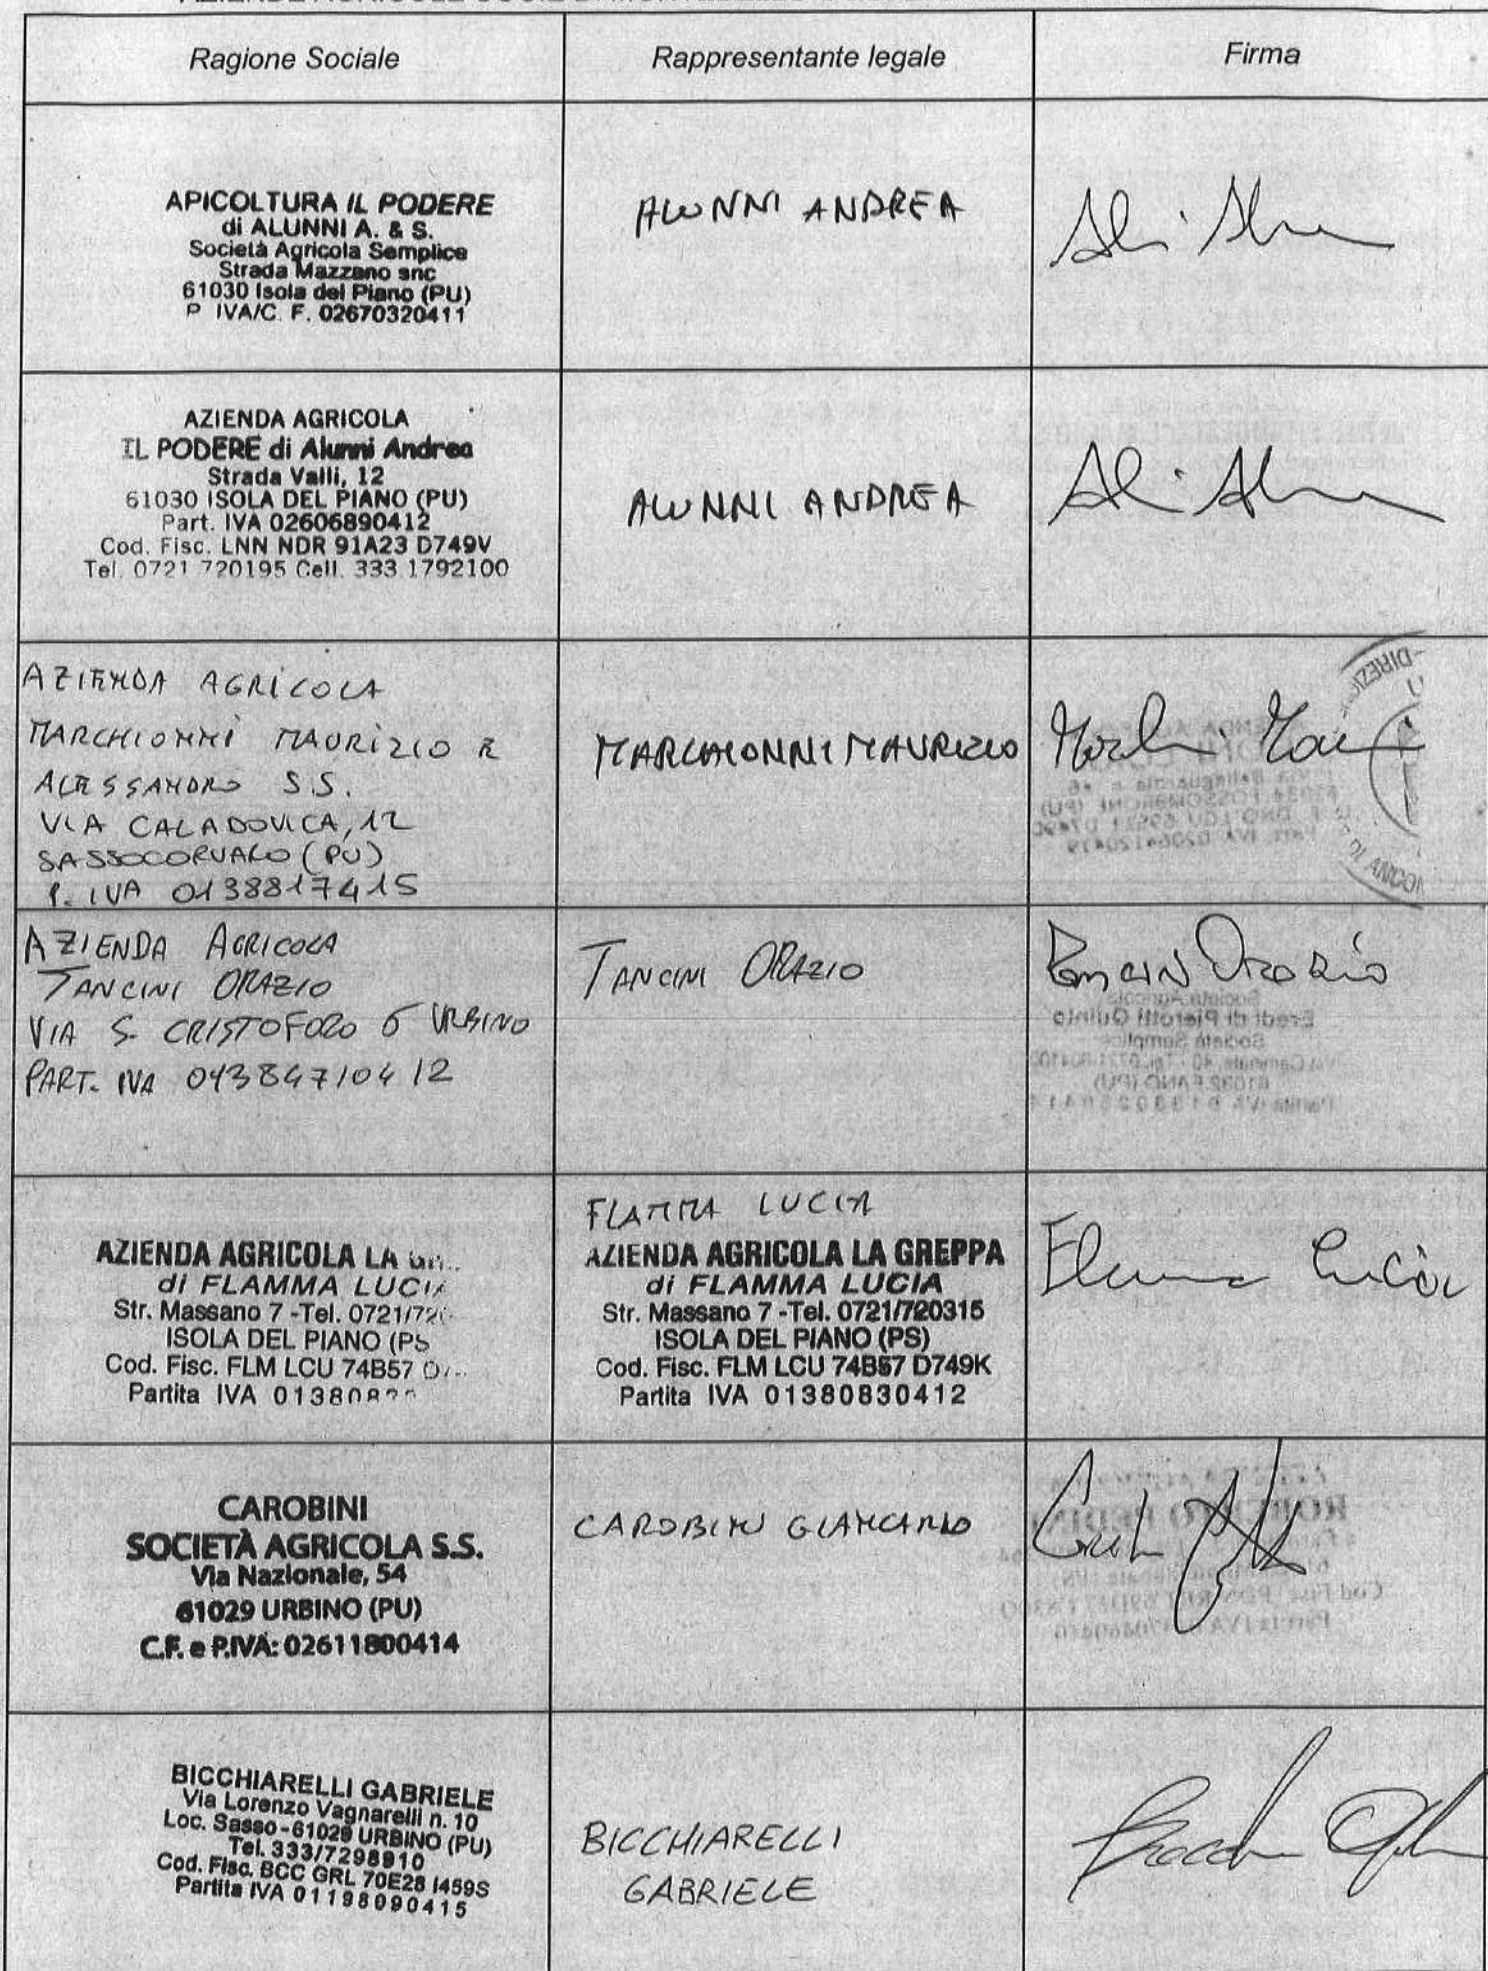 Ragione Sociale
Rappresentante legale
Firma
APICOLTURA IL PODERE
di ALUNNI A. & S.
Società Agricola Semplice
Strada Mazzano snc
61030 Isola del Piano (PU)
P. IVA/C. F. 02670320411
ALUNNI ANDREA
AZIENDA AGRICOLA
IL PODERE di Alunni Andrea
Strada Valli, 12
61030 ISOLA DEL PIANO (PU)
Part. IVA 02606890412
Cod. Fisc. LNN NDR 91A23 D749V
Tel. 0721 720195 Cell. 333 1792100
ALUNNI ANDREA
AZIENDA AGRICOLA
MARCHIONNI MAURIZIO E
ALESSANDRO S.S.
VIA CALADOVICA, 12
SASSOCORVARO (PU)
P. IVA 0138817415
MARCHIONNI MAURIZIO
AZIENDA AGRICOLA
TANCINI ORAZIO
VIA S. CRISTOFORO 6 URBINO
PART. IVA 04384710412
TANCINI ORAZIO
AZIENDA AGRICOLA LA
di FLAMMA LUCIA
Str. Massano 7 -Tel. 0721/720
ISOLA DEL PIANO (PS
Cod. Fisc. FLM LCU 74B57
Partita IVA 013808
FLAMMA LUCIA
AZIENDA AGRICOLA LA GREPPA
di FLAMMA LUCIA
Str. Massano 7 -Tel. 0721/720315
ISOLA DEL PIANO (PS)
Cod. Fisc. FLM LCU 74B57 D749K
Partita IVA 01380830412
Flamma Lucia
CAROBINI
SOCIETÀ AGRICOLA S.S.
Via Nazionale, 54
61029 URBINO (PU)
C.F. e P.IVA: 02611800414
CAROBINI GIANCARLO
BICCHIARELLI GABRIELE
Via Lorenzo Vagnarelli n. 10
Loc. Sasso-61029 URBINO (PU)
Tel. 333/7298910
Cod. Fisc. BCC GRL 70E28 I459S
Partita IVA 01198090415
BICCHIARELLI
GABRIELE